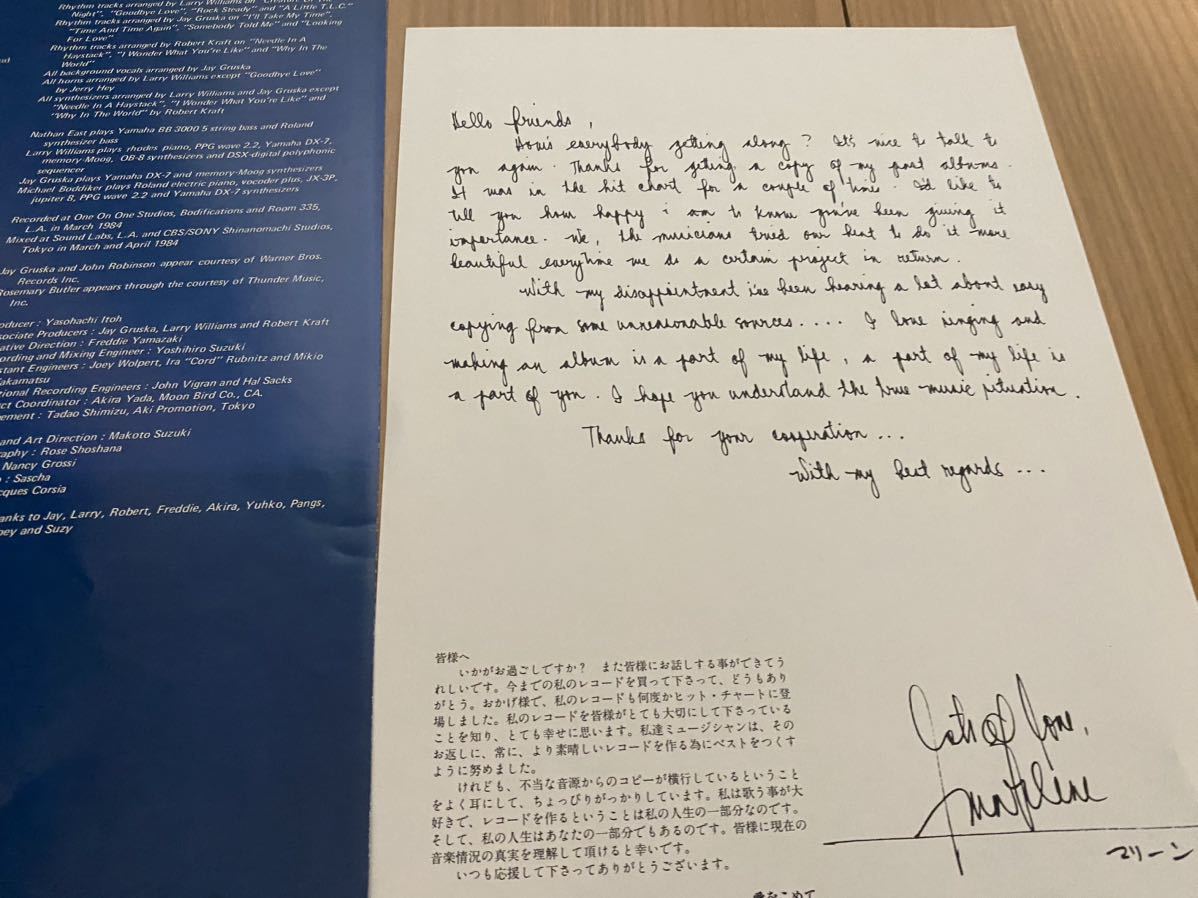 Rhythm tracks arranged by Larry Williams on "Creature Of The
Night", "Goodbye Love", "Rock Steady" and "A Little T.L.C."
Rhythm tracks arranged by Jay Gruska on "I'll Take My Time",
"Time And Time Again", "Somebody Told Me" and "Looking
For Love"
Rhythm tracks arranged by Robert Kraft on "Needle In A
Haystack", "I Wonder What You're Like" and "Why In The
World"
All background vocals arranged by Jay Gruska
All horns arranged by Larry Williams except "Goodbye Love"
by Jerry Hey
All synthesizers arranged by Larry Williams and Jay Gruska except
"Needle In A Haystack", "I Wonder What You're Like" and
"Why In The World" by Robert Kraft
Nathan East plays Yamaha BB 3000 5 string bass and Roland
synthesizer bass
Larry Williams plays rhodes piano, PPG wave 2.2, Yamaha DX-7,
memory-Moog, OB-8 synthesizers and DSX-digital polyphonic
sequencer
Jay Gruska plays Yamaha DX-7 and memory-Moog synthesizers
Michael Boddiker plays Roland electric piano, vocoder plus, JX-3P,
jupiter 8, PPG wave 2.2 and Yamaha DX-7 synthesizers
Recorded at One On One Studios, Bodifications and Room 335,
L.A. in March 1984
Mixed at Sound Labs, L.A. and CBS/SONY Shinanomachi Studios,
Tokyo in March and April 1984
Jay Gruska and John Robinson appear courtesy of Warner Bros.
Records Inc.
Rosemary Butler appears through the courtesy of Thunder Music,
Inc.
oducer : Yasohachi Itoh
ssociate Producers : Jay Gruska, Larry Williams and Robert Kraft
ative Direction : Freddie Yamazaki
ording and Mixing Engineer : Yoshihiro Suzuki
stant Engineers : Joey Wolpert, Ira "Cord" Rubnitz and Mikio
akamatsu
tional Recording Engineers : John Vigran and Hal Sacks
ct Coordinator : Akira Yada, Moon Bird Co., CA.
ement : Tadao Shimizu, Aki Promotion, Tokyo
and Art Direction : Makoto Suzuki
raphy : Rose Shoshana
Nancy Grossi
: Sascha
cques Corsia
anks to Jay, Larry, Robert, Freddie, Akira, Yuhko, Pangs,
oey and Suzy
Hello friends,
How's everybody getting along? It's nice to talk to
you again. Thanks for getting a copy of my past albums.
It was in the hit chart for a couple of times. I'd like to
tell you how happy i am to know you've been giving it
importance. We, the musicians tried our best to do it more
beautiful everytime we do a certain project in return.
With my disappointment i've been hearing a lot about easy
copying from some unreasonable sources.... I love singing and
making an album is a part of my life, a part of my life is
a part of you. I hope you understand the true music situation.
Thanks for your cooperation...
With my best regards...
皆様へ
いかがお過ごしですか? また皆様にお話しする事ができてう
れしいです。今までの私のレコードを買って下さって、どうもあり
がとう。おかげ様で、私のレコードも何度かヒット・チャートに登
場しました。私のレコードを皆様がとても大切にして下さっている
ことを知り、とても幸せに思います。私達ミュージシャンは、その
お返しに、常に、より素晴しいレコードを作る為にベストをつくす
ように努めました。
けれども、不当な音源からのコピーが横行しているということ
をよく耳にして、ちょっぴりがっかりしています。私は歌う事が大
好きで、レコードを作るということは私の人生の一部分なのです。
そして、私の人生はあなたの一部分でもあるのです。皆様に現在の
音楽情況の真実を理解して頂けると幸いです。
いつも応援して下さってありがとうございます。
愛をこめて
Lots of love,
marlene
マリーン